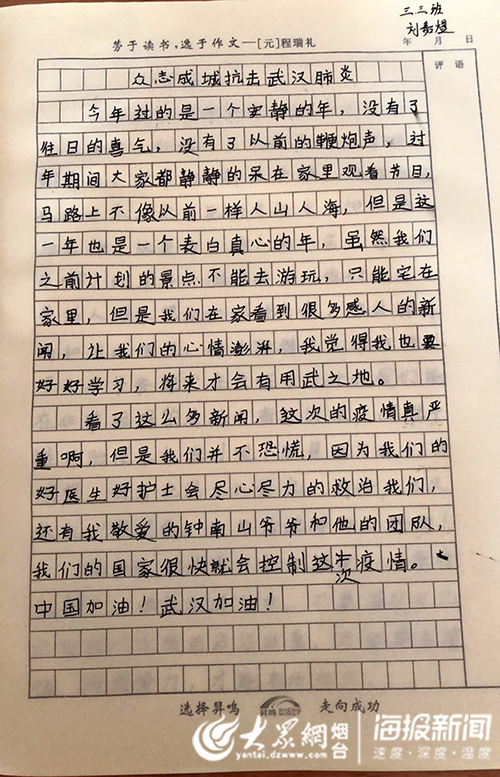 三三班
刘嘉煜
劳于读书，逸于作文—[元]程瑞礼
年 月 日
评 语
众志成城抗击武汉肺炎
今年过的是一个安静的年，没有了
往日的喜气，没有了以前的鞭炮声，过
年期间大家都静静的呆在家里观看节目，
马路上不像以前一样人山人海，但是这
一年也是一个表白真心的年，虽然我们
之前计划的景点不能去游玩，只能宅在
家里，但是我们在家看到很多感人的新
闻，让我们的心情澎湃，我觉得我也要
好好学习，将来才会有用武之地。
看了这么多新闻，这次的疫情真严
重啊，但是我们并不恐慌，因为我们的
好医生好护士会尽心尽力的救治我们，
还有我敬爱的钟南山爷爷和他的团队，
我们的国家很快就会控制这次疫情。
中国加油！武汉加油！
选择昇鸣 走向成功
大众网 烟台
yantai.dzwww.com
海报新闻
速度·深度·温度